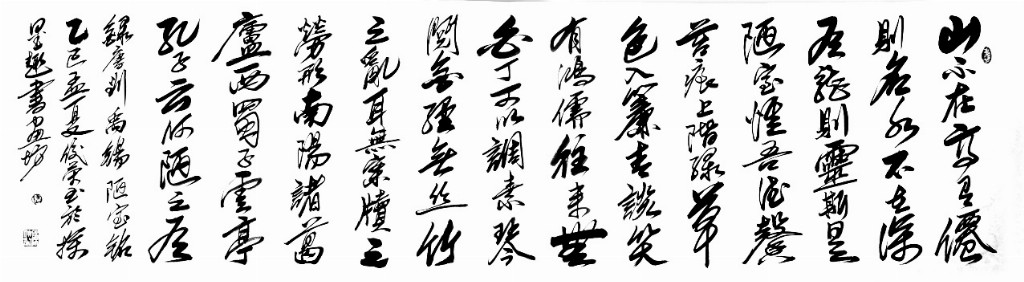 山不在高有僊
則名水不在深
有龍則靈斯是
陋室惟吾德馨
苔痕上階綠草
色入簾青談笑
有鴻儒往來無
白丁可以調素琴
閱金經無絲竹
之亂耳無案牘之
勞形南陽諸葛
廬西蜀子雲亭
孔子云何陋之有
錄唐劉禹錫陋室銘
乙巳孟夏書於
墨趣書畫坊